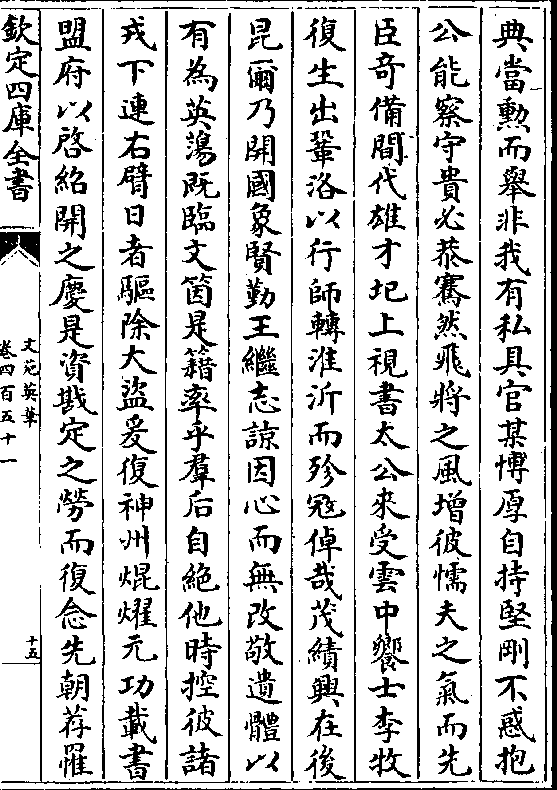 典當勲而舉非我有私具官某愽厚自持堅剛不惑抱
公能察守貴必恭騫然飛將之風增彼懦夫之氣而先
臣竒備間代雄才圯上視書太公來受雲中饗士李牧
復生出鞏洛以行師轉淮沂而殄寇倬哉茂績興在後
昆爾乃開國象賢勤王繼志諒因心而無改敬遺體以
有為英蕩既臨文箇是籍率乎羣后自絶他時控彼諸
戎下連右臂日者驅除大盜爰復神州焜燿元功載書
盟府以啓紹開之慶是資戡定之勞而復念先朝荐罹
欽定四庫全書
文苑英華
卷四百五十一
十五